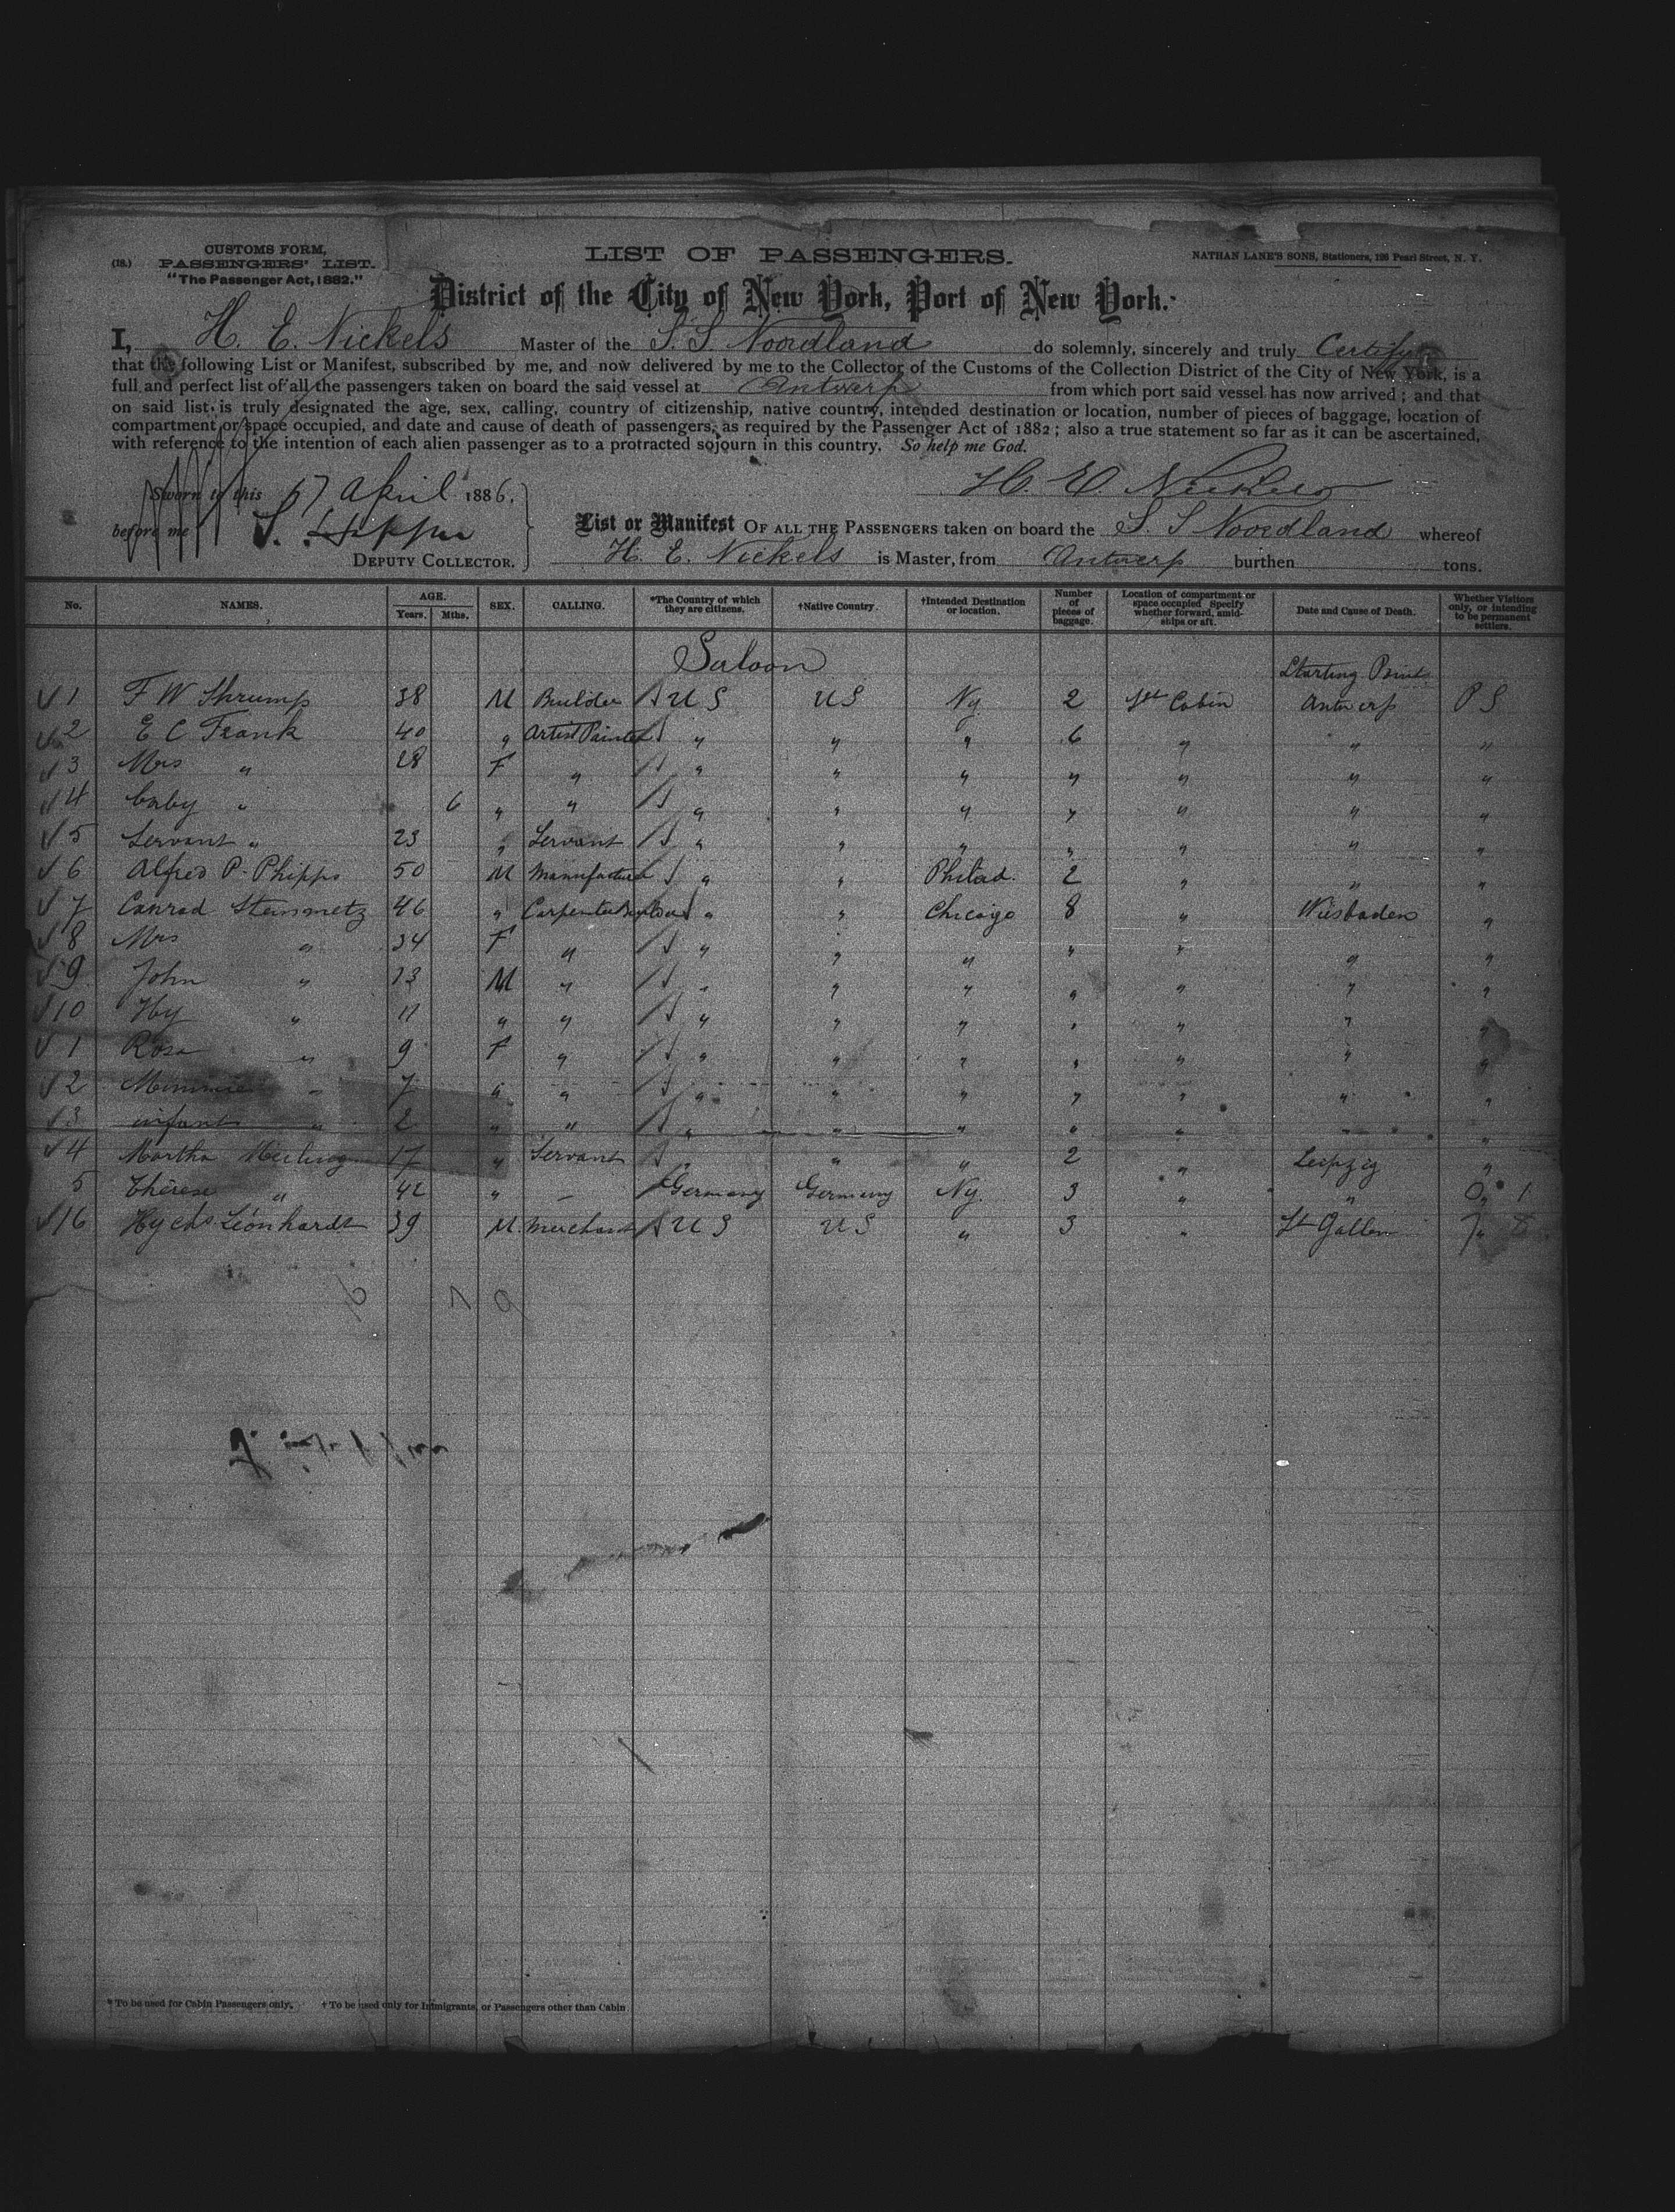 CUSTOMS FORM,
(18.) PASSENGERS' LIST.
"The Passenger Act, 1882."
LIST OF PASSENGERS.
NATHAN LANE'S SONS, Stationers, 128 Pearl Street, N. Y.
District of the City of New York, Port of New York.
I, H. E. Nickels Master of the S. S Noordland do solemnly, sincerely and truly Certify
that the following List or Manifest, subscribed by me, and now delivered by me to the Collector of the Customs of the Collection District of the City of New York, is a
full and perfect list of all the passengers taken on board the said vessel at Antwerp from which port said vessel has now arrived; and that
on said list is truly designated the age, sex, calling, country of citizenship, native country, intended destination or location, number of pieces of baggage, location of
compartment or space occupied, and date and cause of death of passengers, as required by the Passenger Act of 1882; also a true statement so far as it can be ascertained,
with reference to the intention of each alien passenger as to a protracted sojourn in this country. So help me God.
Sworn to this 17 April 1886.
H. E. Nickels
before me
DEPUTY COLLECTOR.
List or Manifest OF ALL THE PASSENGERS taken on board the S. S Noordland whereof
H. E. Nickels is Master, from Antwerp burthen tons.
No. NAMES. AGE. Years. Mths. SEX. CALLING. *The Country of which they are citizens. †Native Country. †Intended Destination or location. Number of pieces of baggage. Location of compartment or space occupied Specify whether forward, amidships or aft. Date and Cause of Death. Whether Visitors only, or intending to be permanent settlers.
Saloon
Starting Point
1 F W Shrump 38 M Builder U S U S Ny. 2 1st Cabin Antwerp P S
2 E C Frank 40 " Artist Painter " " " 6 " " "
3 Mrs " 28 F " " " " " " " "
4 baby " 6 " " " " " " " " "
5 Servant " 23 " Servant " " " " " " "
6 Alfred P. Phipps 50 M Manufacturer " " Philad. 2 " " "
7 Conrad Steinmetz 46 " Carpenter Builder " " Chicago 8 " Wiesbaden "
8 Mrs " 34 F " " " " " " " "
9 John " 13 M " " " " " " " "
10 Hy " 11 " " " " " " " " "
1 Rosa " 9 F " " " " " " " "
2 Minnie " 7 " " " " " " " " "
3 infant " 2 " " " " " " " " "
4 Martha 17 " Servant " " " 2 " Leipzig "
5 Thérese " 42 " - Germany Germany Ny. 3 " " "
16 Hy chs Leonhardt 39 M. Merchant U S U S " 3 " St Gallen "
* To be used for Cabin Passengers only. † To be used only for Immigrants, or Passengers other than Cabin